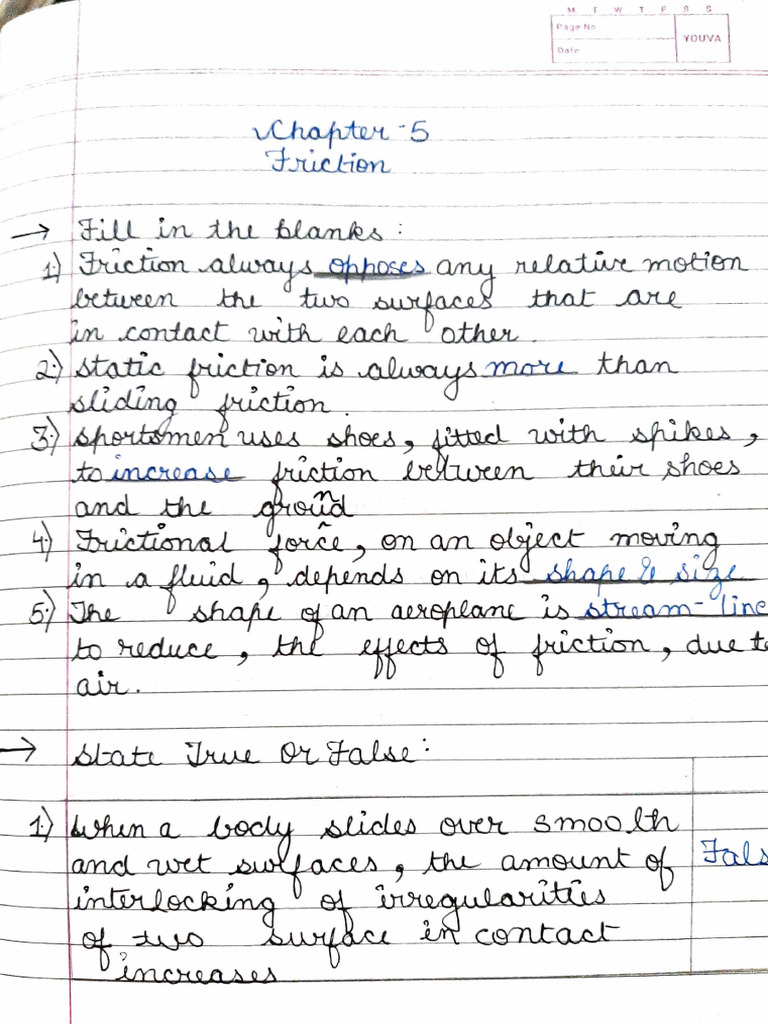 M T W T F S S
Page No
YOUVA
Date
Chapter - 5
Friction
→ Fill in the blanks :
1.) Friction always opposes any relative motion
between the two surfaces that are
in contact with each other.
2.) Static friction is always more than
sliding friction.
3.) Sportsmen uses shoes, fitted with spikes,
to increase friction between their shoes
and the ground
4.) Frictional force, on an object moving
in a fluid, depends on its shape & size
5.) The shape of an aeroplane is stream-line
to reduce, the effects of friction, due to
air.
→ State True Or False :
1.) When a body slides over smooth
and wet surfaces, the amount of Fals
interlocking of irregularities
of two surface in contact
increases